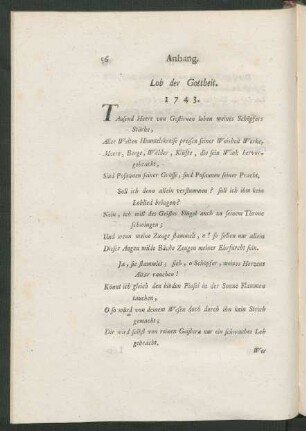 56 Anhang.
Lob der Gottheit.
1743.
Tausend Heere von Gestirnen loben meines Schöpfers
Stärke,
Aller Welten Himmelskreise preisen seiner Weisheit Werke,
Meere, Berge, Wälder, Klüfte, die sein Wink hervor-
gebracht,
Sind Posaunen seiner Grösse, sind Posaunen seiner Pracht.
Soll ich denn allein verstummen? soll ich ihm kein
Loblied bringen?
Nein, ich will des Geistes Flügel auch zu seinem Throne
schwingen;
Und wenn meine Zunge stammelt, o! so sollen nur allein
Dieser Augen milde Bäche Zeugen meiner Ehrfurcht sein.
Ja, sie stammelt; sieh, o Schöpfer, meines Herzens
Altar rauchen!
Könnt ich gleich den blöden Pinsel in der Sonne Flammen
tauchen,
O so würd von deinem Wesen doch durch ihn kein Strich
gemacht;
Dir wird selbst von reinen Geistern nur ein schwaches Lob
gebracht.
Wer